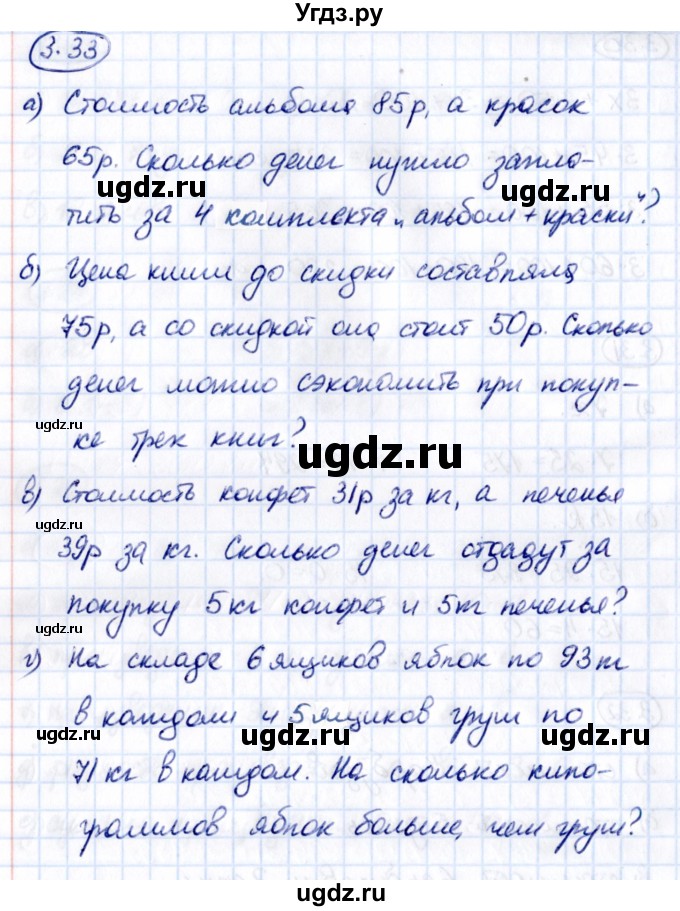 Угдз.ру
3.33
а) Стоимость альбома 85р, а красок
65р. Сколько денег нужно запла-
ugdz.ru ugdz.ru
тить за 4 комплекта „альбом + краски"?
ugdz.ru
б) Цена книги до скидки составляла
75р, а со скидкой она стоит 50р. Сколько
денег можно сэкономить при покуп-
ugdz.ru
ке трех книг?
ugdz.ru
в) Стоимость конфет 31р за кг, а печенья
ugdz.ru
39р за кг. Сколько денег отдадут за
покупку 5кг конфет и 5кг печенья?
ugdz.ru
г) На складе 6 ящиков яблок по 93кг
ugdz.ru
в каждом и 5 ящиков груш по
ugdz.ru ugdz.ru
71кг в каждом. На сколько кило-
граммов яблок больше, чем груш?
ugdz.ru ugdz.ru
ugdz.ru